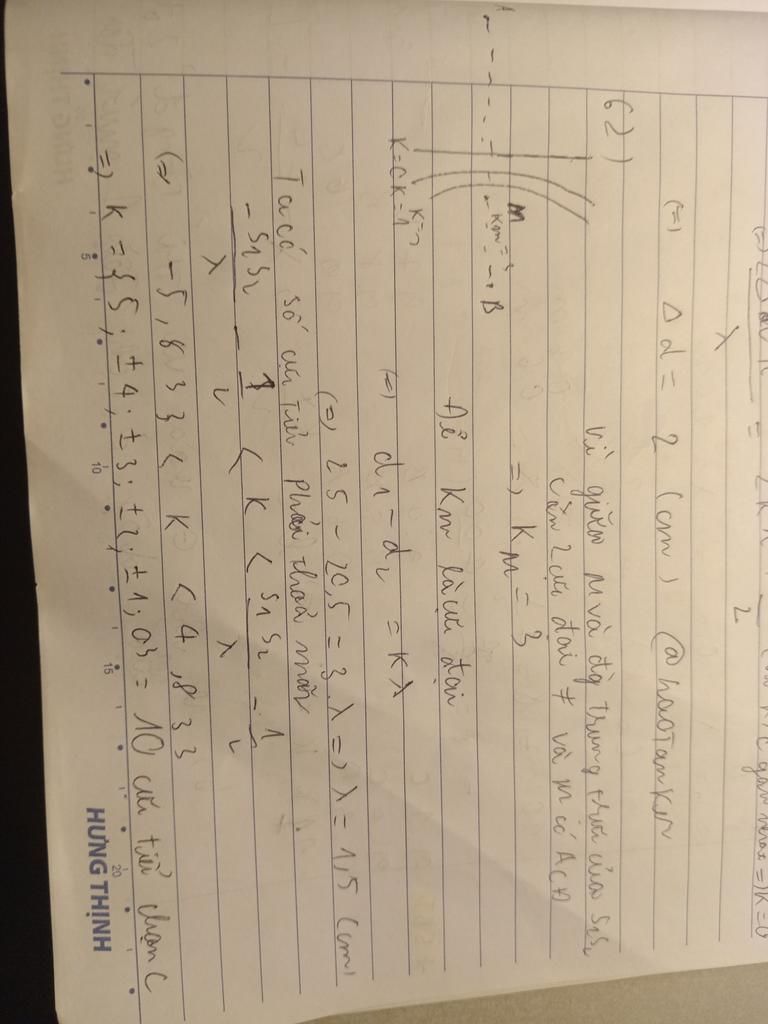 (=) Δd = 2 (cm) @haoTanker
62)
Vì giữa M và đg trung trực của S1S2
còn 2 cực đại ≠ và M có ACĐ
=> KM = 3
M
KM = 3
B
K=0 K=1 K=2
Để KM là cực đại
(=) d1 - d2 = Kλ
(=) 25 - 20,5 = 3.λ => λ = 1,5 (cm)
Ta có số cực tiểu phải thoả mãn
-S1S2/λ - 1/2 < K < S1S2/λ - 1/2
(=) -5,833 < K < 4,833
=> K = {5; ±4; ±3; ±2; ±1; 0} = 10 cực tiểu chọn C
5 10 15 20
HƯNG THỊNH